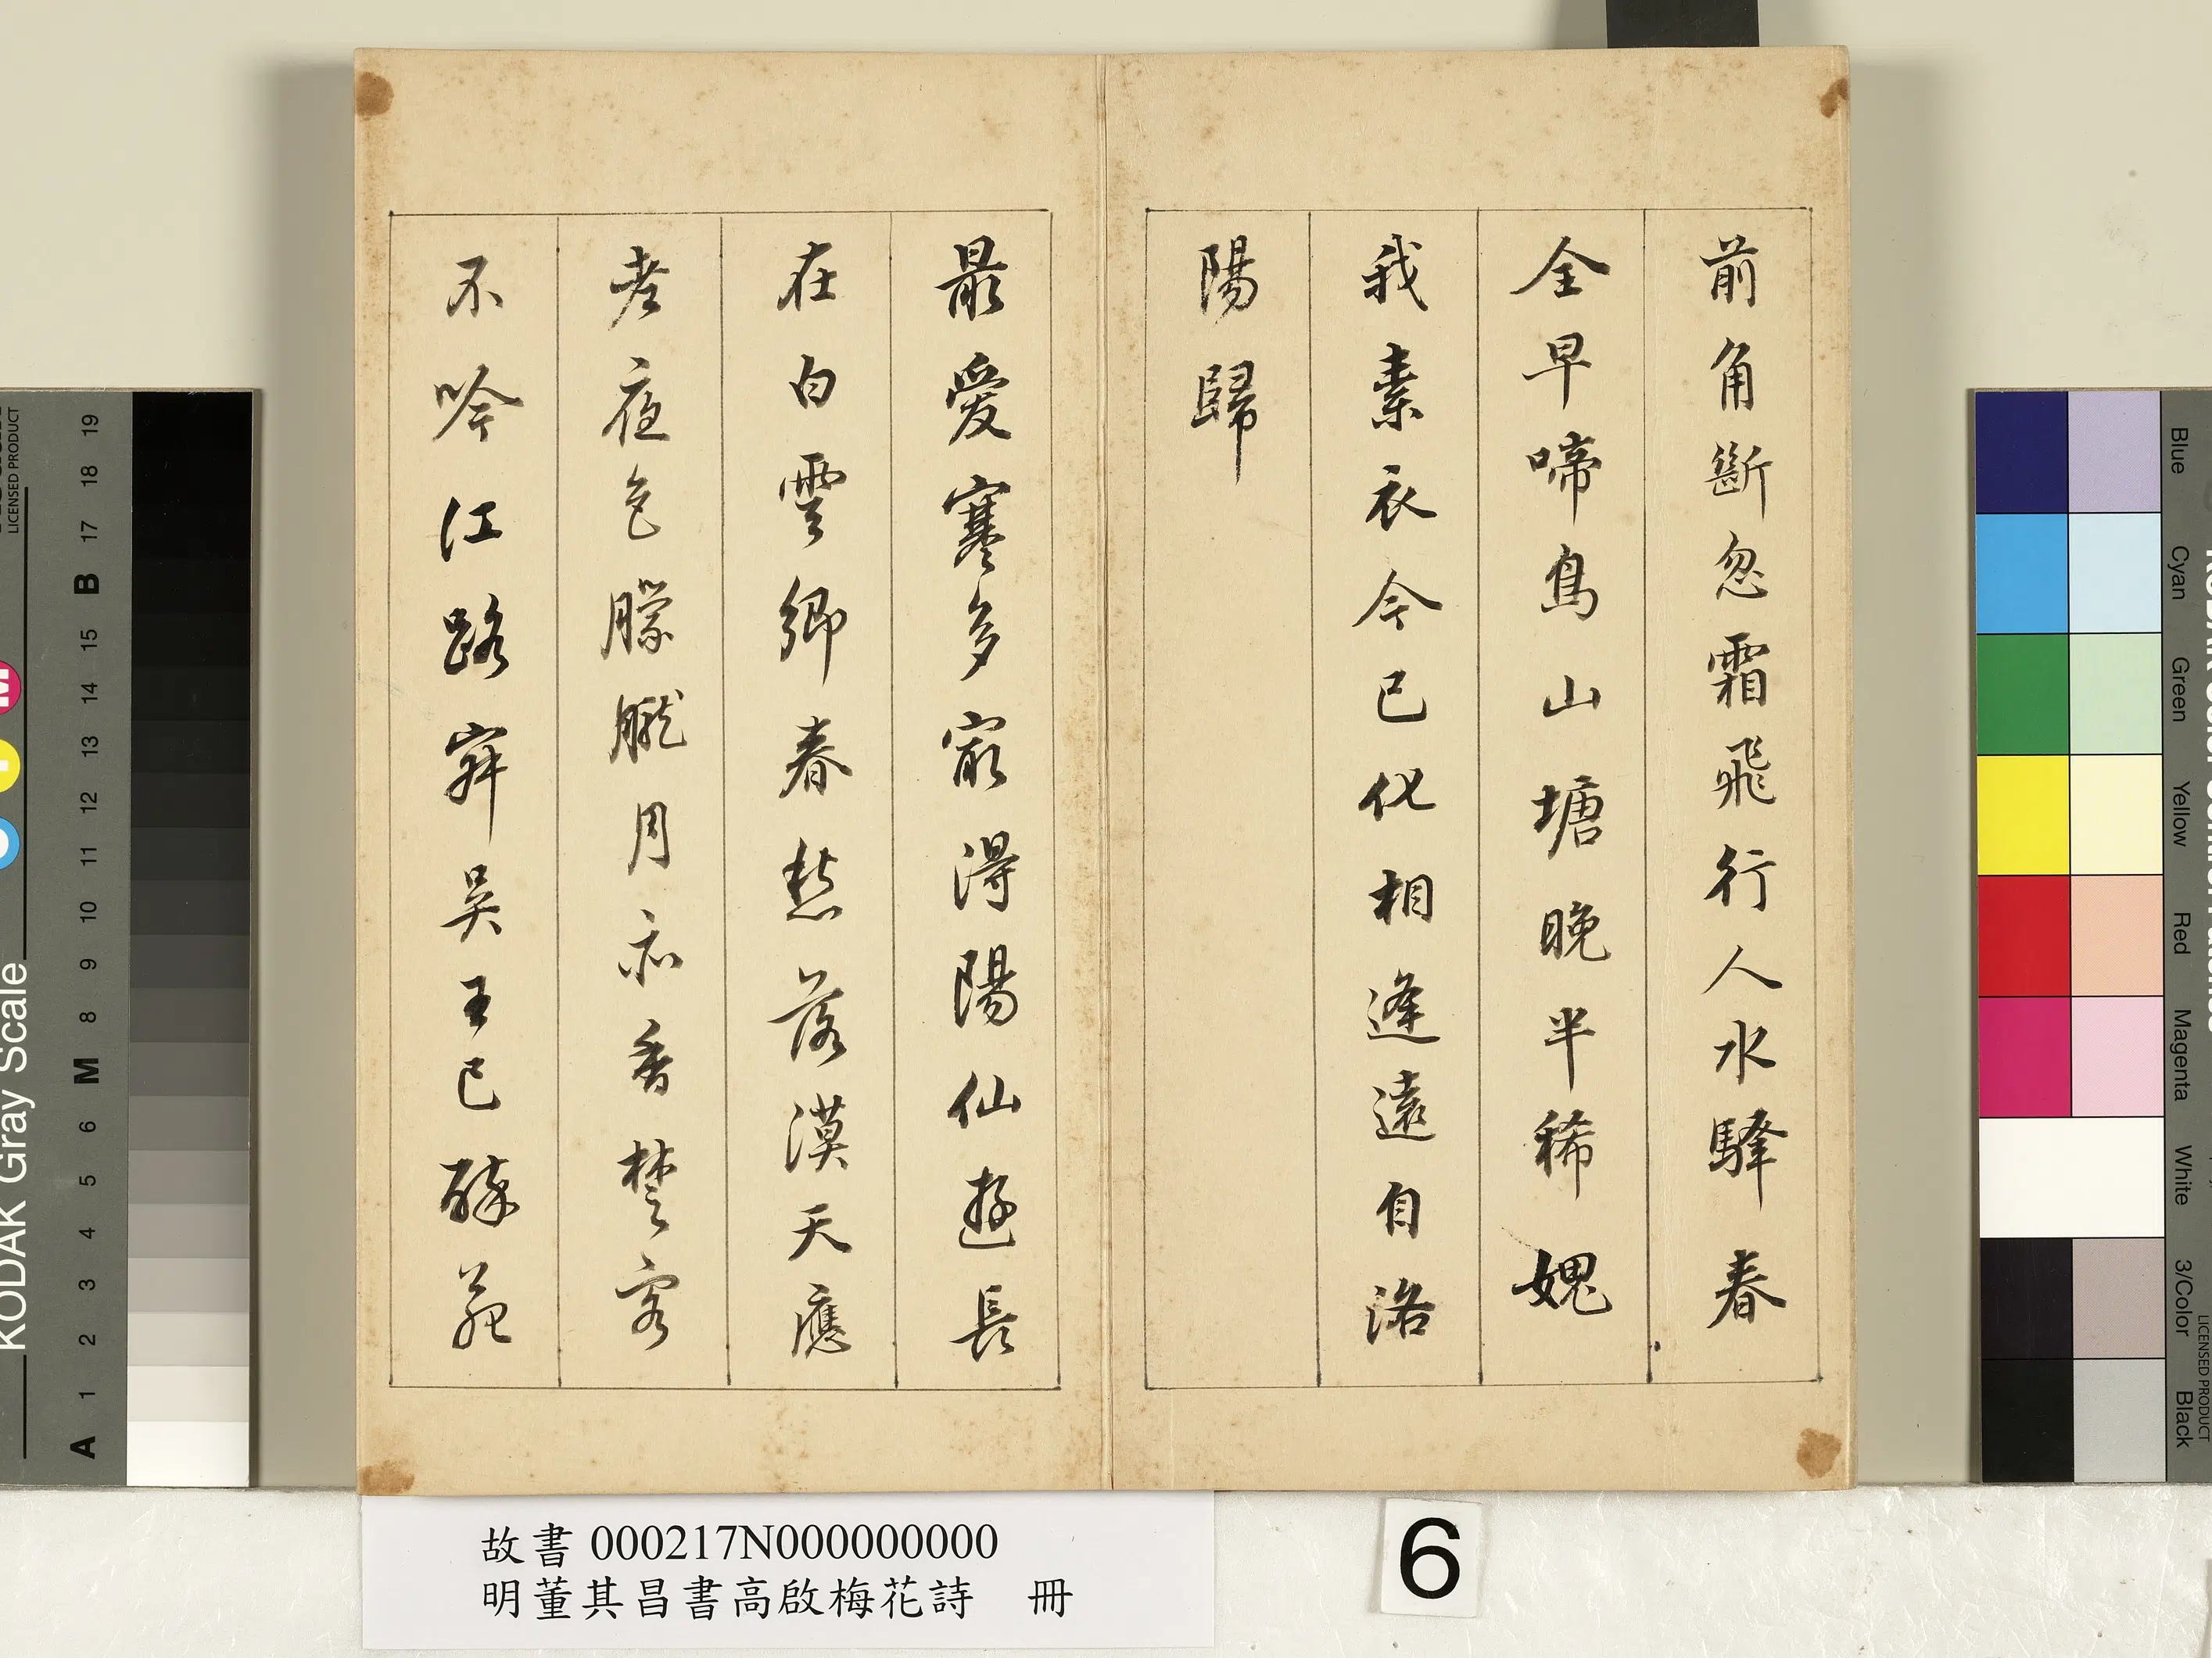 前角斷忽霜飛行人水驛春
全早啼鳥山塘晚半稀媿
我素衣今已化相逢遠自洛
陽歸
最愛寒多㝡得陽仙遊長
在白雲鄉春愁落漠天應
老夜色朦朧月亦香楚客
不吟江路寂吳王已醉苑
故書 000217N000000000
明董其昌書高啟梅花詩 冊
6
KODAK Gray Scale
LICENSED PRODUCT
A 1 2 3 4 5 6 M 8 9 10 11 12 13 14 15 B 17 18 19
Blue Cyan Green Yellow Red Magenta White 3/Color Black
LICENSED PRODUCT